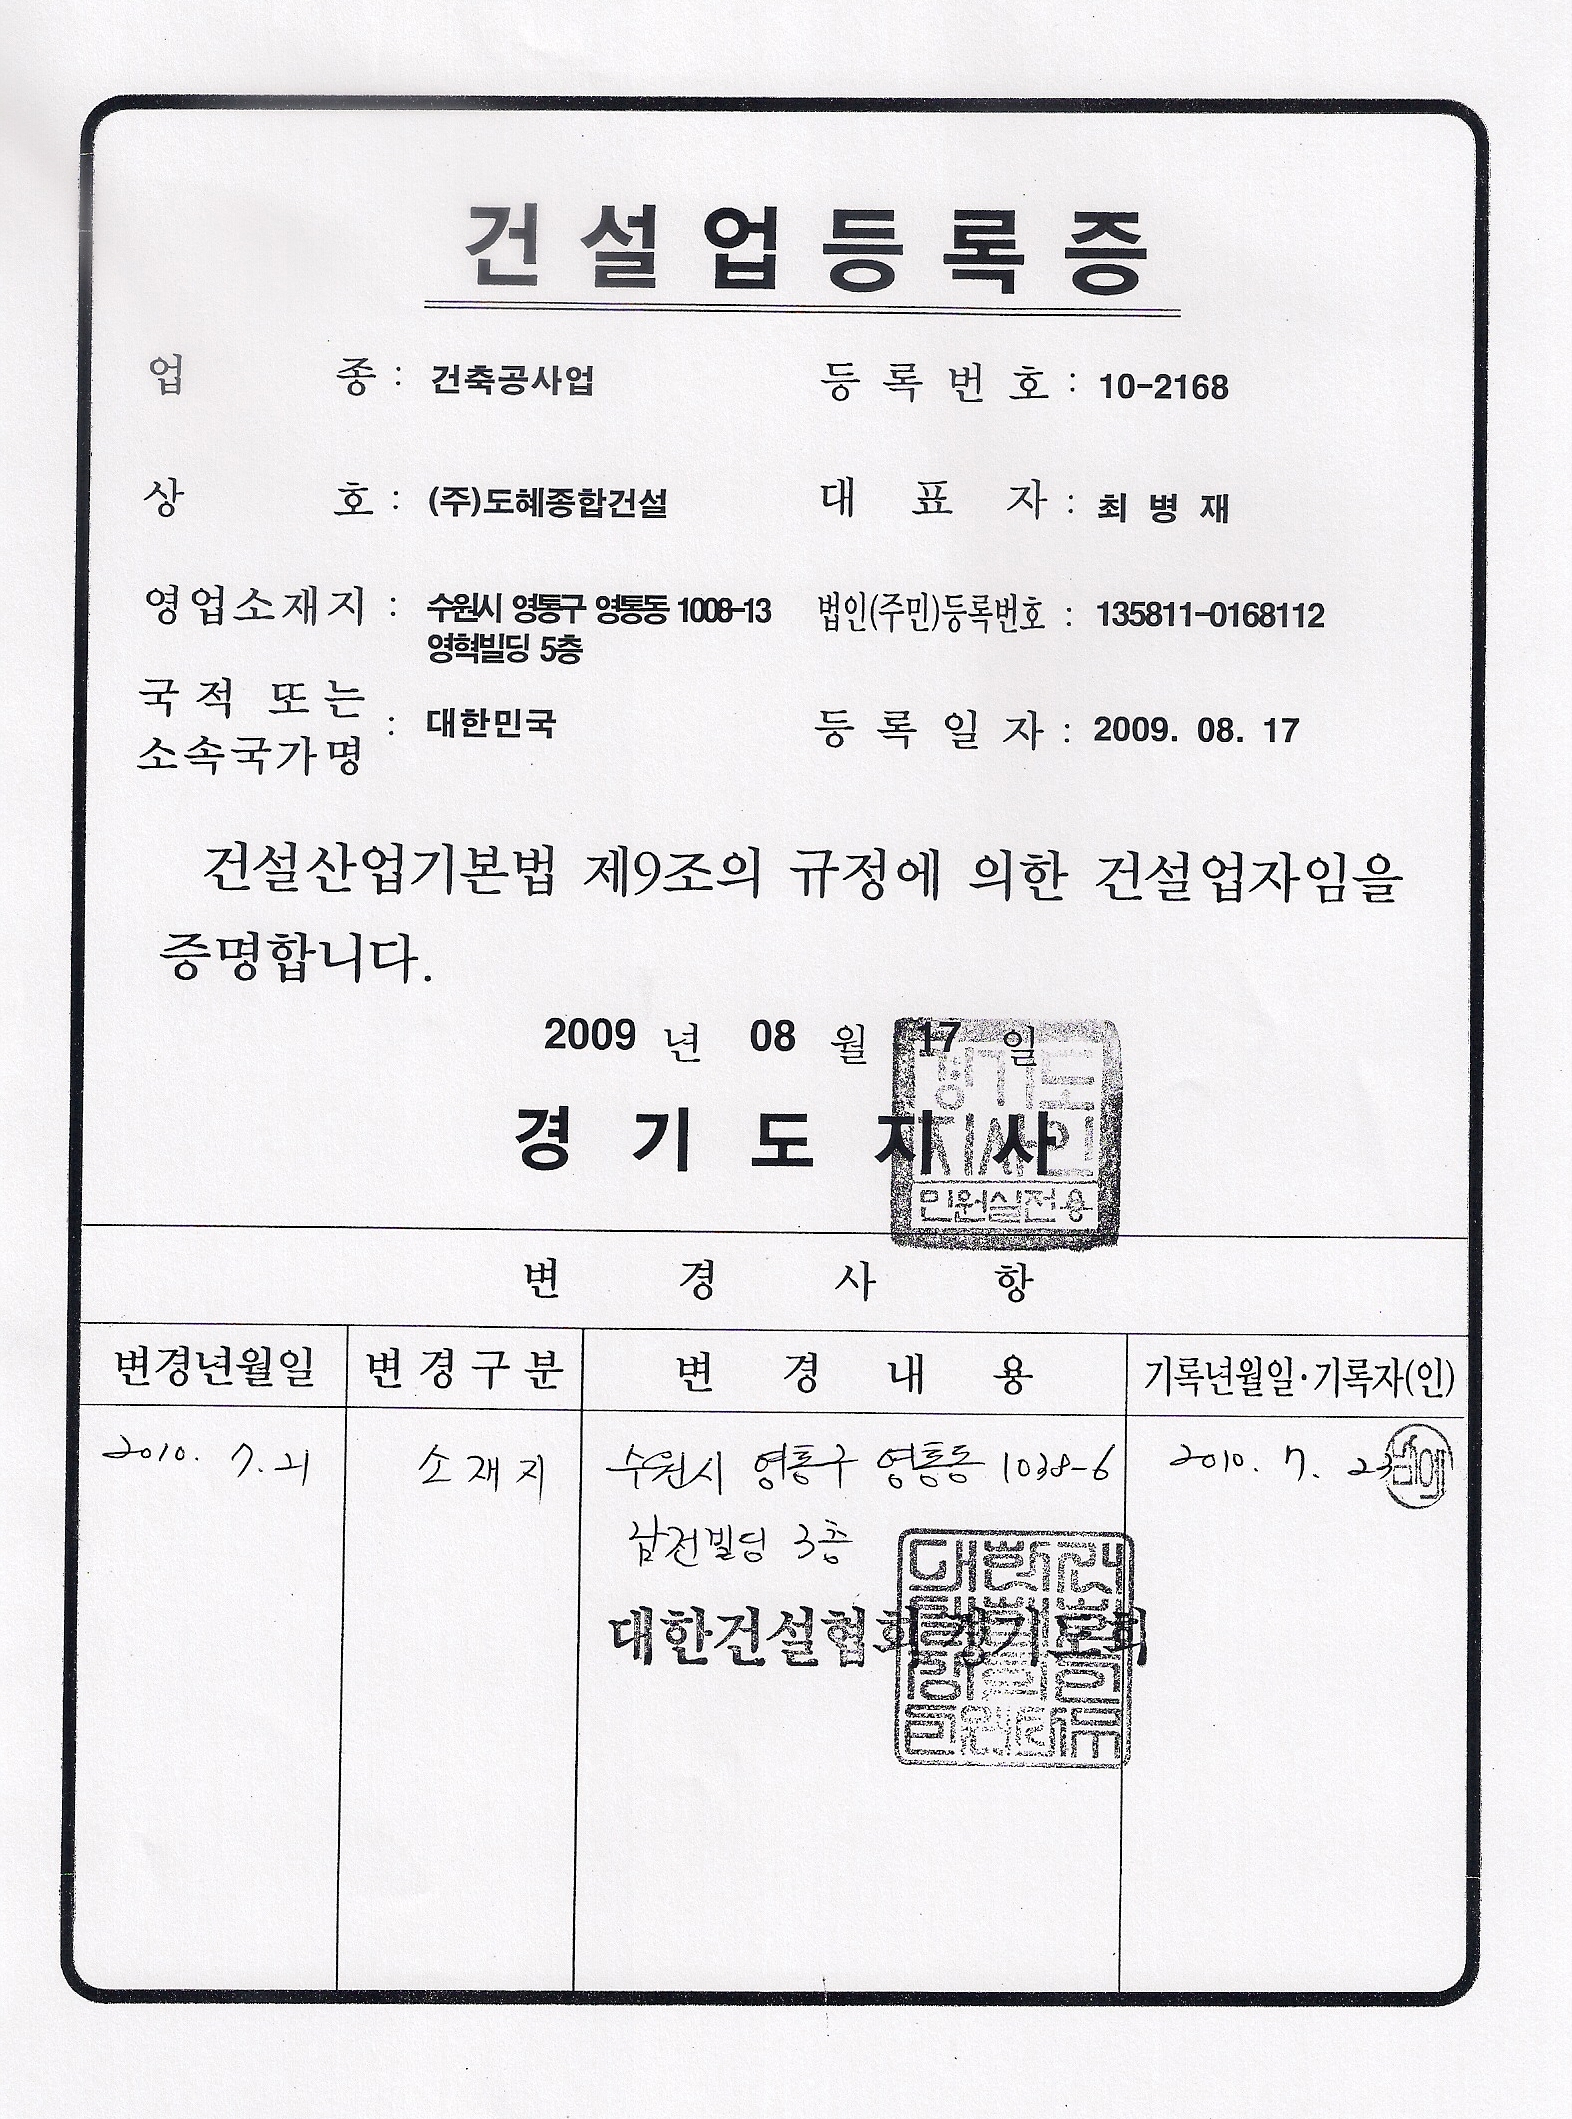 건설업등록증
업 종 : 건축공사업 등록번호 : 10-2168
상 호 : (주)도혜종합건설 대 표 자 : 최 병 재
영업소재지 : 수원시 영통구 영통동 1008-13 법인(주민)등록번호 : 135811-0168112
영혁빌딩 5층
국적 또는
소속국가명 : 대한민국 등록일자 : 2009. 08. 17
건설산업기본법 제9조의 규정에 의한 건설업자임을
증명합니다.
2009 년 08 월 17 일
경 기 도 지 사
민원실전용
변 경 사 항
변경년월일 변경구분 변 경 내 용 기록년월일·기록자(인)
2010. 7. 21 소재지 수원시 영통구 영통동 1038-6 2010. 7. 23
남전빌딩 3층
대한건설협회 경기도회